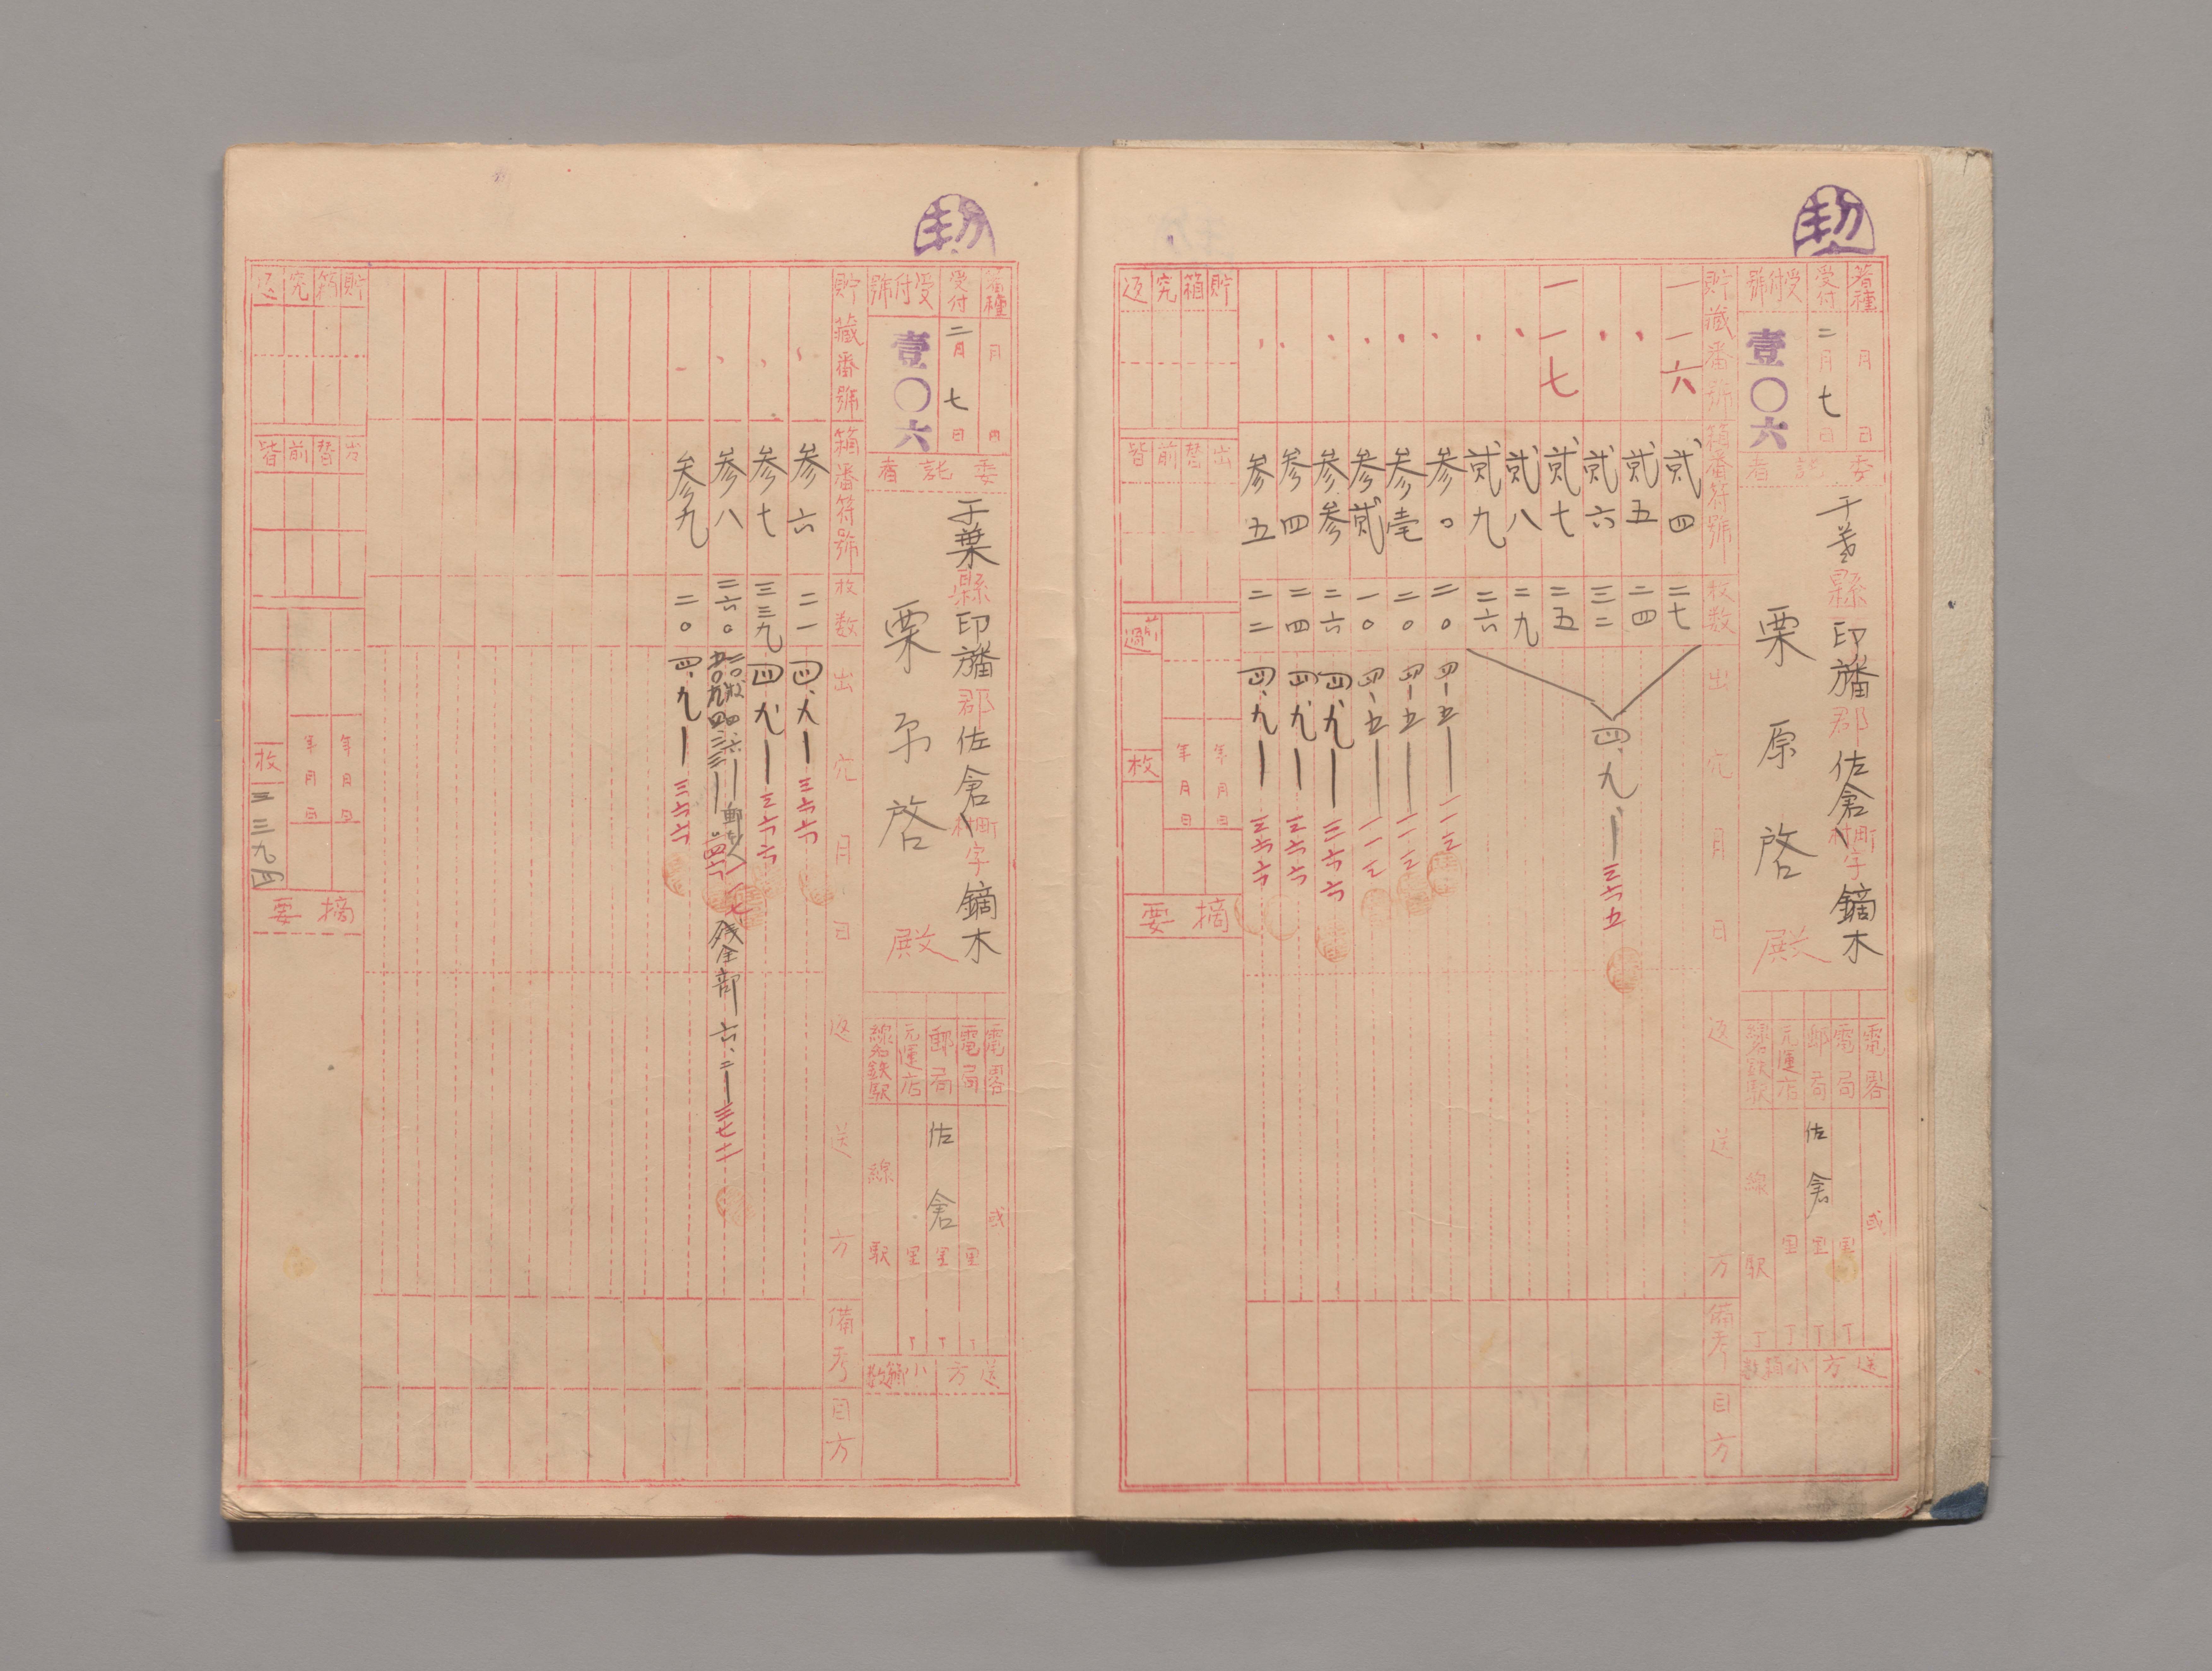 契
蚕種
月
日
受付
二月七日
受付號
壹〇六
委託者
千葉縣印旛郡佐倉町村字鏑木
栗原啓殿
電略
電局
郵局
元運店
線名鉄駅
或
佐倉
里
里
里
線
駅
丁
丁
丁
丁
送方
小箱数
貯蔵番號
箱番符號
枚数
出穴月日
返送方
備考
目方
一一六
貳四
二七
貳五
二四
貳六
三二
一一七
貳七
二五
貳八
二九
貳九
二六
四、九、一
三六五
参〇
二〇
四一五一
一一三
参壱
二〇
四一五一
一一三
参貳
一〇
四一五一
一一三
参参
二六
四、九、一
三六六
参四
二四
四、九、一
三六六
参五
二二
四、九、一
三六六
貯箱究返
出替前皆
年月日
年月日
枚
摘要
契
蚕種
月
日
受付
二月七日
受付號
壹〇六
委託者
千葉縣印旛郡佐倉町村字鏑木
啓殿
電略
電局
郵局
元運店
線名鉄駅
或
佐倉
里
里
里
線
駅
丁
丁
丁
送方
小箱数
貯藏番號
箱番符號
枚数
出穴月日
返送方
備考
目方
参六
二一
四、九一
三六六
参七
三三九
四九、一
三六六
参八
二六〇
残全部六、二一
三七二
参九
二〇
四、九一
三六六
貯箱究返
出替前皆
年月日
年月日
枚
三三九四
摘要